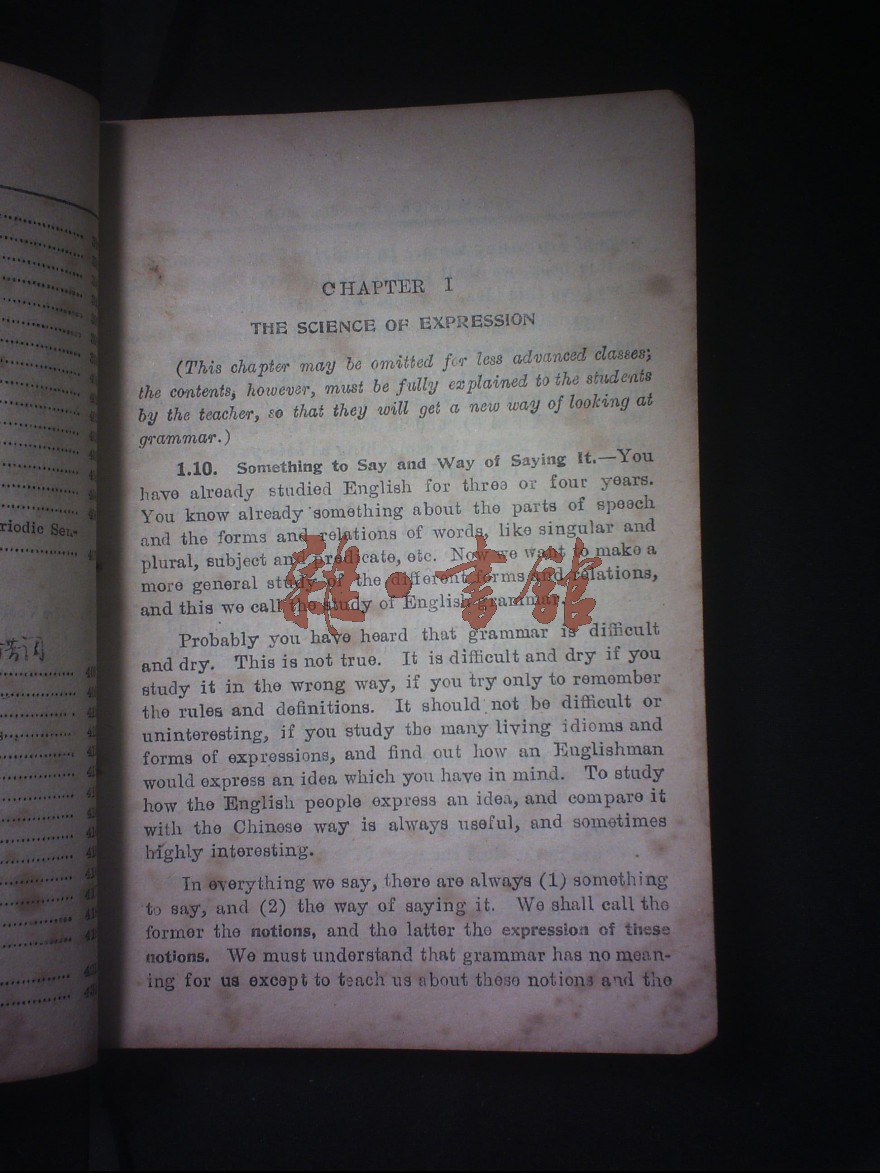 riodic Sen-
CHAPTER I
THE SCIENCE OF EXPRESSION
(This chapter may be omitted for less advanced classes;
the contents, however, must be fully explained to the students
by the teacher, so that they will get a new way of looking at
grammar.)
1.10. Something to Say and Way of Saying It.—You
have already studied English for three or four years.
You know already something about the parts of speech
and the forms and relations of words, like singular and
plural, subject and predicate, etc. Now we want to make a
more general study of the different forms and relations,
and this we call the study of English grammar.
雜·書館
Probably you have heard that grammar is difficult
and dry. This is not true. It is difficult and dry if you
study it in the wrong way, if you try only to remember
the rules and definitions. It should not be difficult or
uninteresting, if you study the many living idioms and
forms of expressions, and find out how an Englishman
would express an idea which you have in mind. To study
how the English people express an idea, and compare it
with the Chinese way is always useful, and sometimes
highly interesting.
In everything we say, there are always (1) something
to say, and (2) the way of saying it. We shall call the
former the notions, and the latter the expression of these
notions. We must understand that grammar has no mean-
ing for us except to teach us about these notions and the